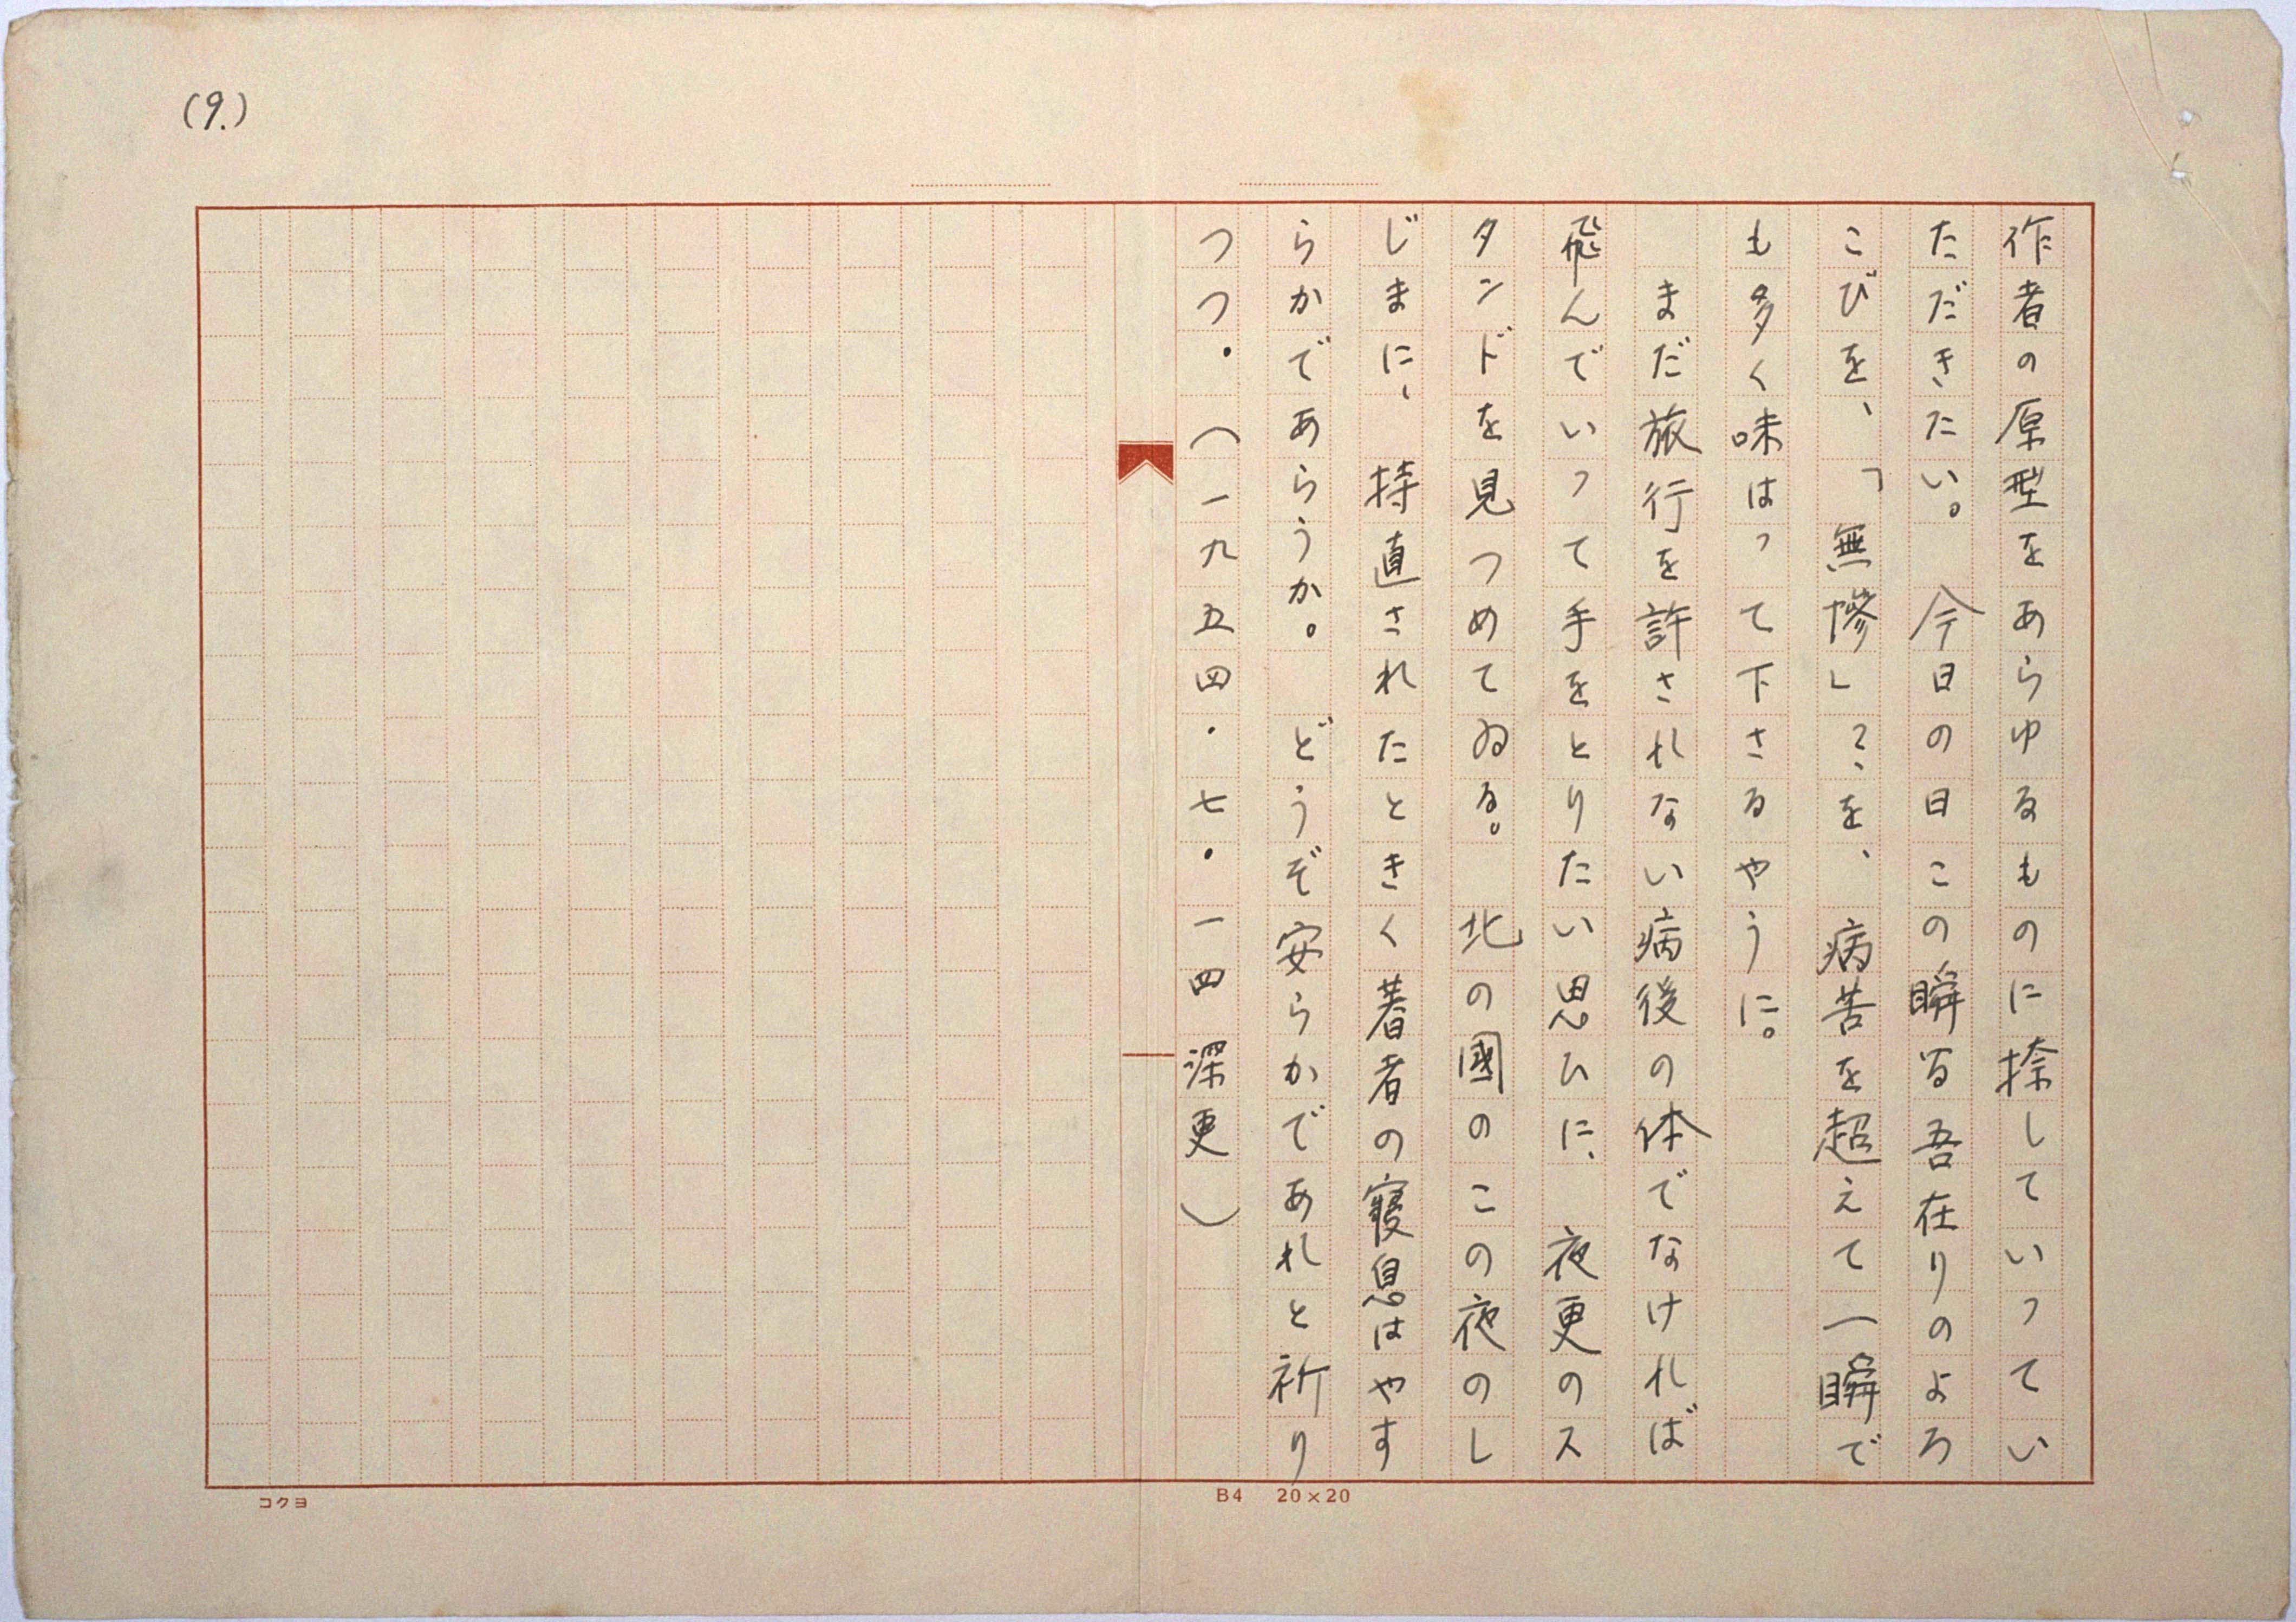 (9.)
作者の原型をあらゆるものに捺していってい
ただきたい。今日の日この瞬る吾在りのよろ
こびを、「無惨」?を、病苦を超えて一瞬で
も多く味はって下さるやうに。
まだ旅行を許されない病後の体でなければ
飛んでいって手をとりたい思ひに、夜更のス
タンドを見つめてゐる。北の國のこの夜のし
じまに、持直されたときく著者の寝息はやす
らかであらうか。どうぞ安らかであれと祈り
つつ・(一九五四・七・一四深更)
コクヨ
B4 20×20